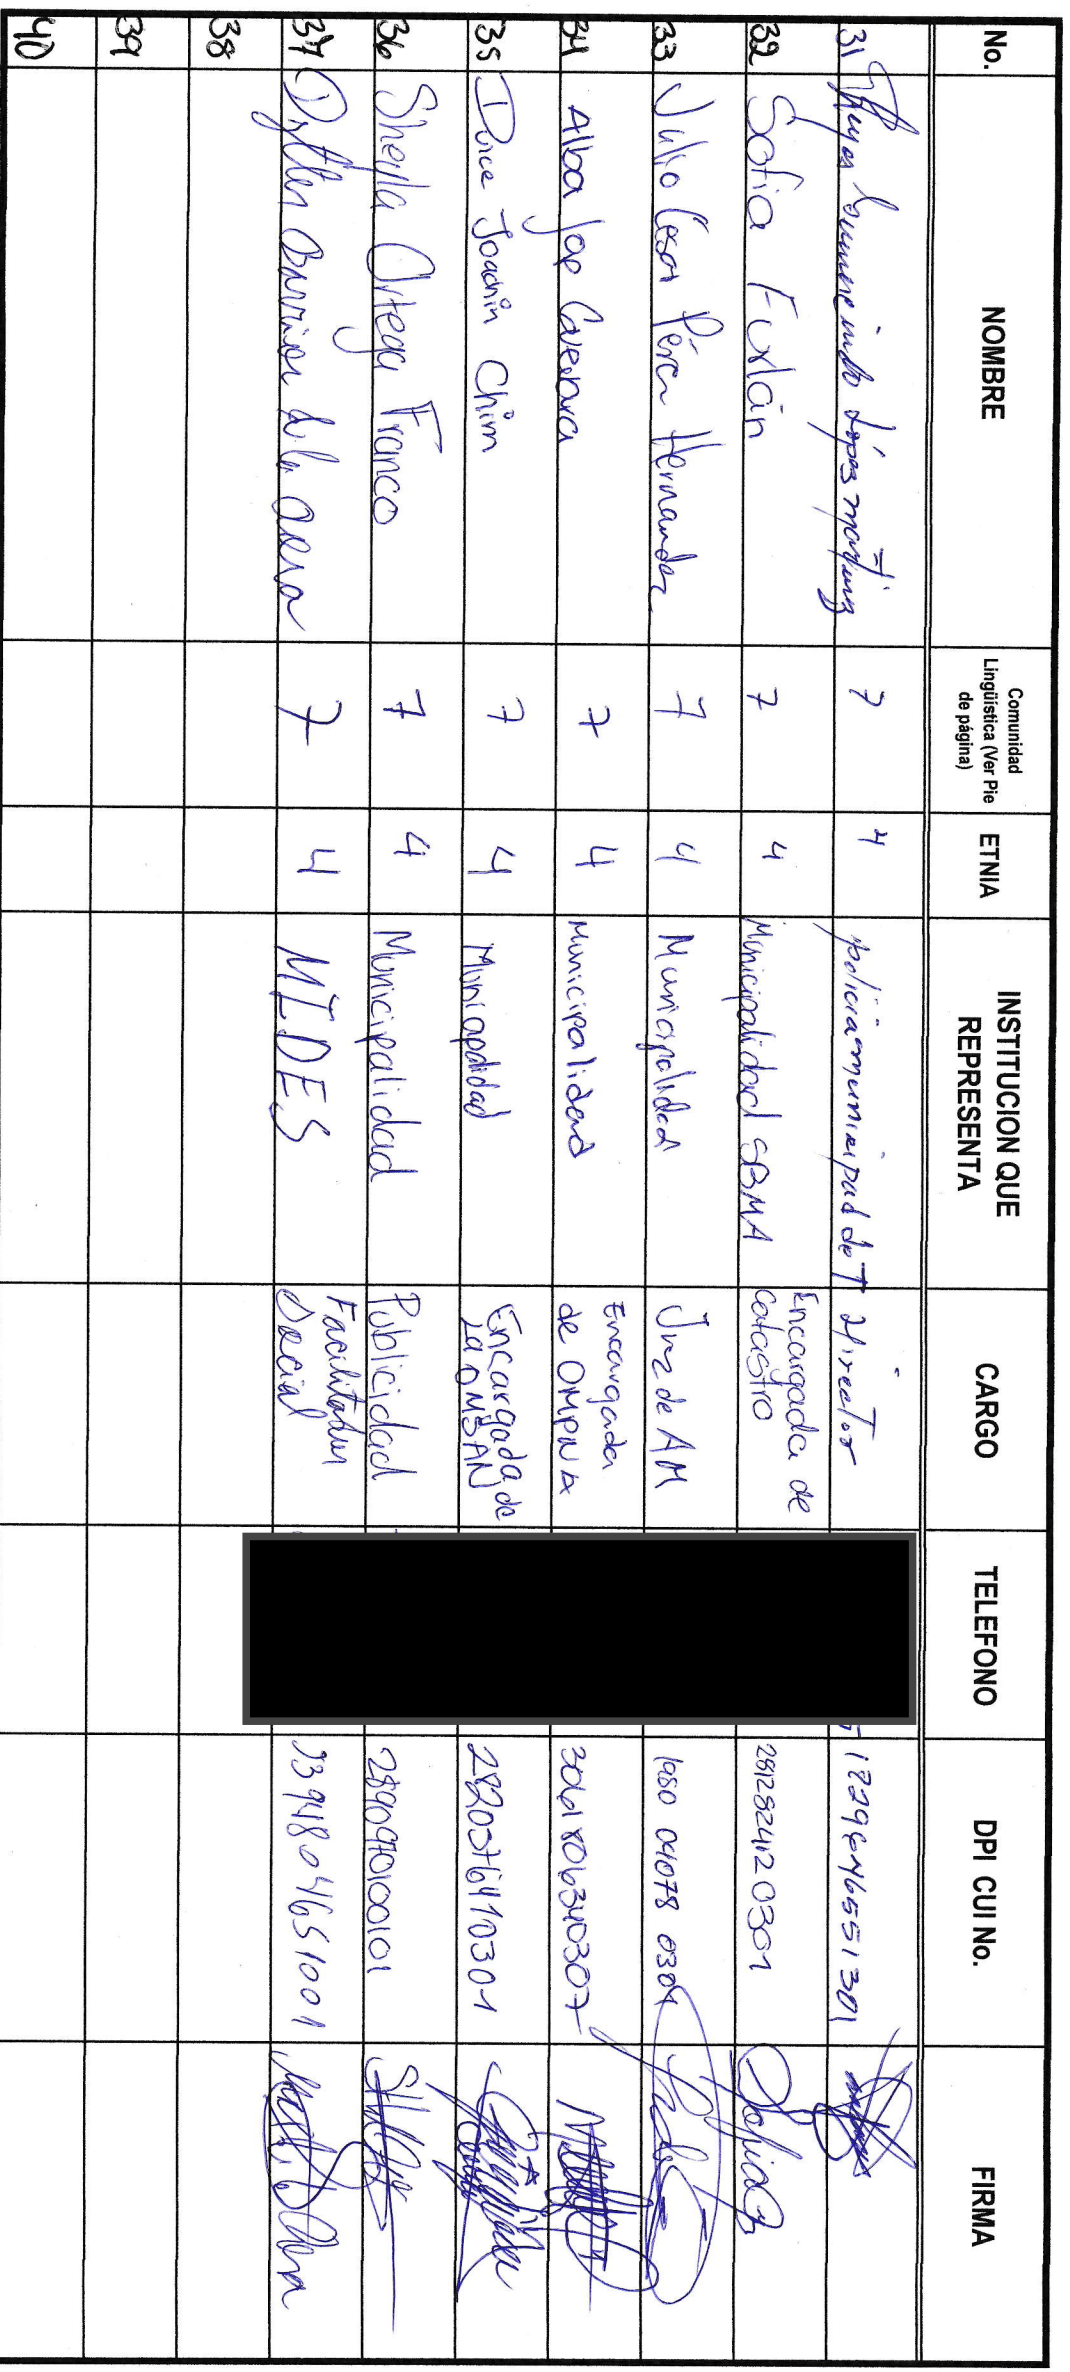 No. NOMBRE Comunidad Lingüística (Ver Pie de página) ETNIA INSTITUCION QUE REPRESENTA CARGO TELEFONO DPI CUI No. FIRMA
31 López 7 4 policia municipal de T director 1229646551301
32 Sofia Furlán 7 4 Municipalidad SBMA Encargada de Catastro 2812824120301
33 Julio Cesar Pérez Hernandez 7 4 Municipalidad Juez de AM 1980 04078 0301
34 Alba Jop Guevara 7 4 Municipalidad Encargada de OMPNA 3061806340307
35 Dulce Joachin Chim 7 4 Municipalidad Encargada de la OMSAN 2820376410301
36 Sheyla Ortega Franco 7 4 Municipalidad Publicidad 2890970100101
37 Barrios de la 7 4 MIDES Facilitador Social 3394804651001
38
39
40